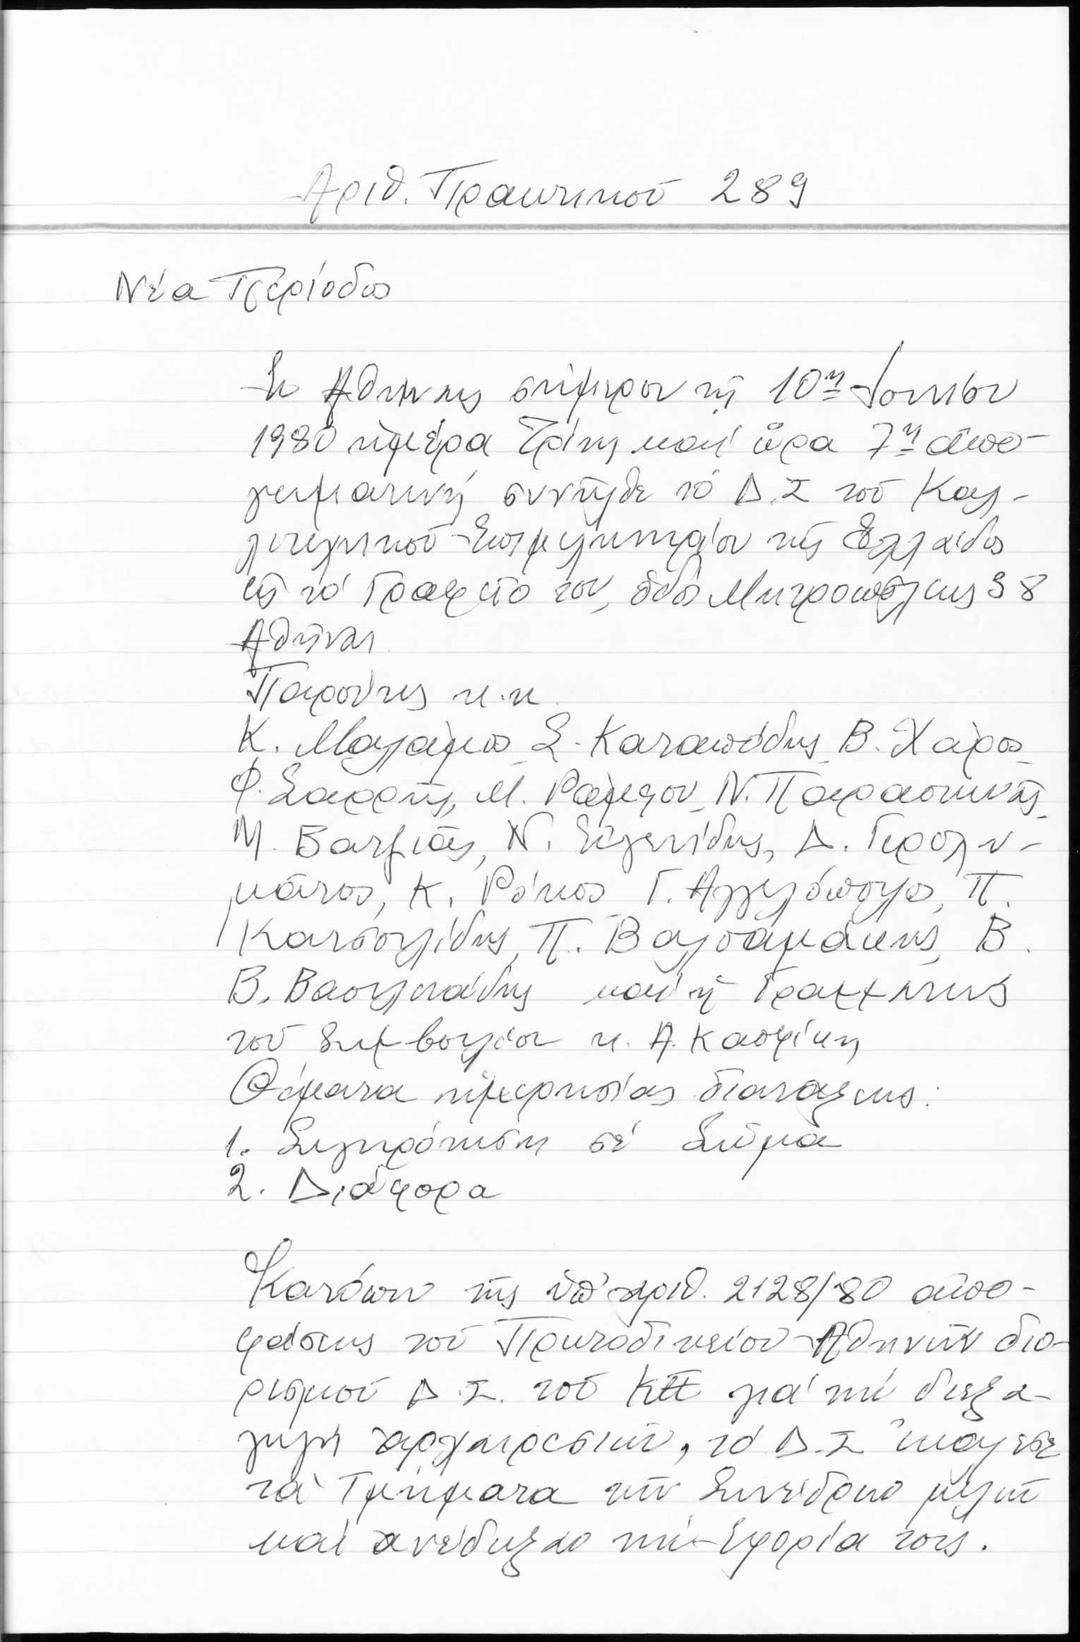 Αριθ. Πρακτικού 289
Νέα Περίοδος
Εν Αθήναις σήμερον τῇ 10ῃ Ιουνίου
1980 ἡμέρα Τρίτη καί ὥρα 7η απο-
γευματινή συνῆλθε τό Δ.Σ τοῦ Καλ-
λιτεχνικοῦ Επιμελητηρίου τῆς Ελλάδος
εἰς τό Γραφεῖο του, ὁδός Μητροπόλεως 38
Αθῆναι
Παρόντες κ.κ
Κ. Μαλάμος, Σ. Καταπόδης, Β. Χάρος,
Φ. Σαρρῆς, Μ. Ράμφου, Ν. Παρασκευᾶς,
Μ. Βατζιᾶς, Ν. Ευγενίδης, Δ. Γερολυ-
μάτος, Κ. Ρόκος, Γ. Αγγελόπουλος, Π.
Κατσουλίδης, Π. Βαλσαμάκης, Β.
Β. Βασιλειάδης καί ἡ Γραμματεύς
τοῦ Συμβουλίου κ. Α. Κασφίκη
Θέματα ἡμερησίας διατάξεως:
1. Συγκρότηση σέ Σῶμα
2. Διάφορα
Κατόπιν τῆς ὑπ' αριθ. 2128/80 απο-
φάσεως τοῦ Πρωτοδικείου Αθηνῶν διο-
ρισμοῦ Δ.Σ. τοῦ ΚΕΕ γιά τήν διεξα-
γωγή αρχαιρεσιῶν, τό Δ.Σ ἐκάλεσε
τά Τμήματα τῶν Συνέδρων μελῶν
καί ανέδειξαν τήν Εφορία τους.